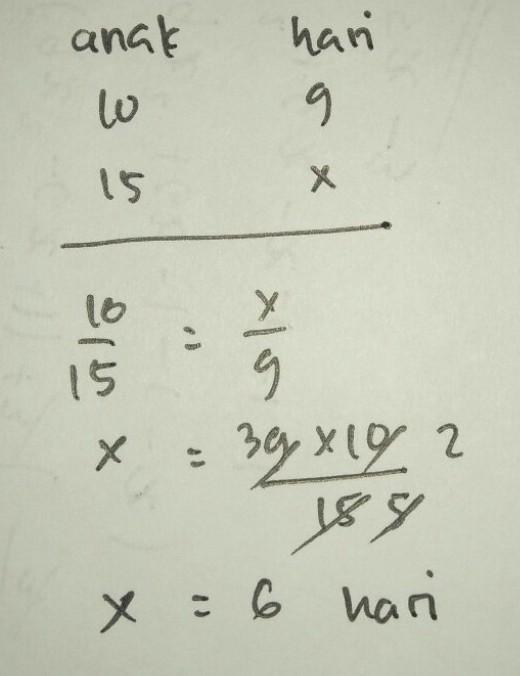 anak hari
10 9
15 x
10/15 = x/9
x = 3 9 x 10 2 / 15 5
x = 6 hari